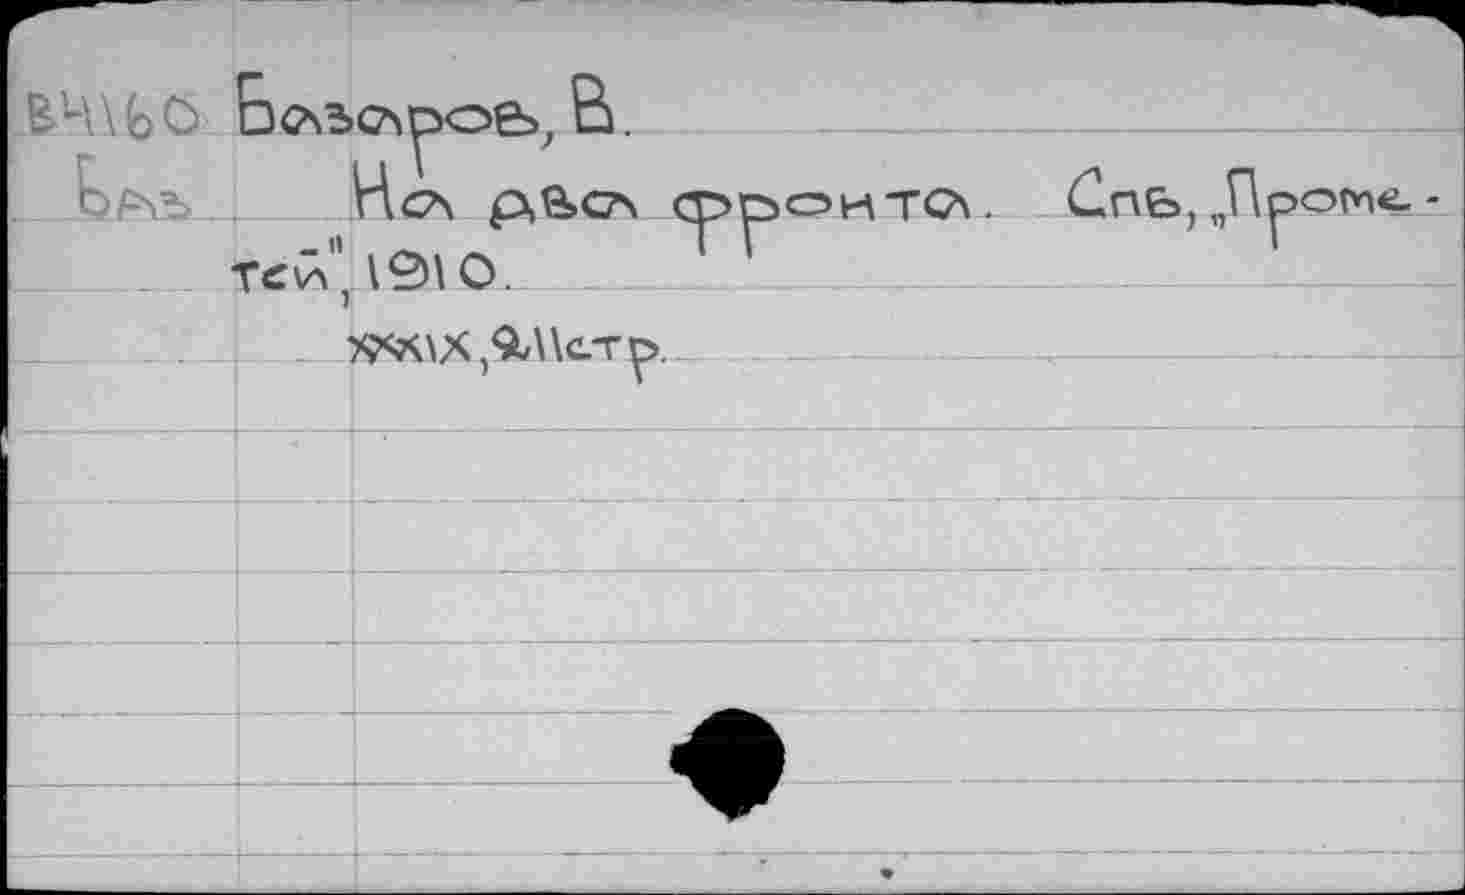 Базаров, В.
Баз
На два фронта. Спб, „Проме-
тей", 1910.
XXXIX, 211 стр.